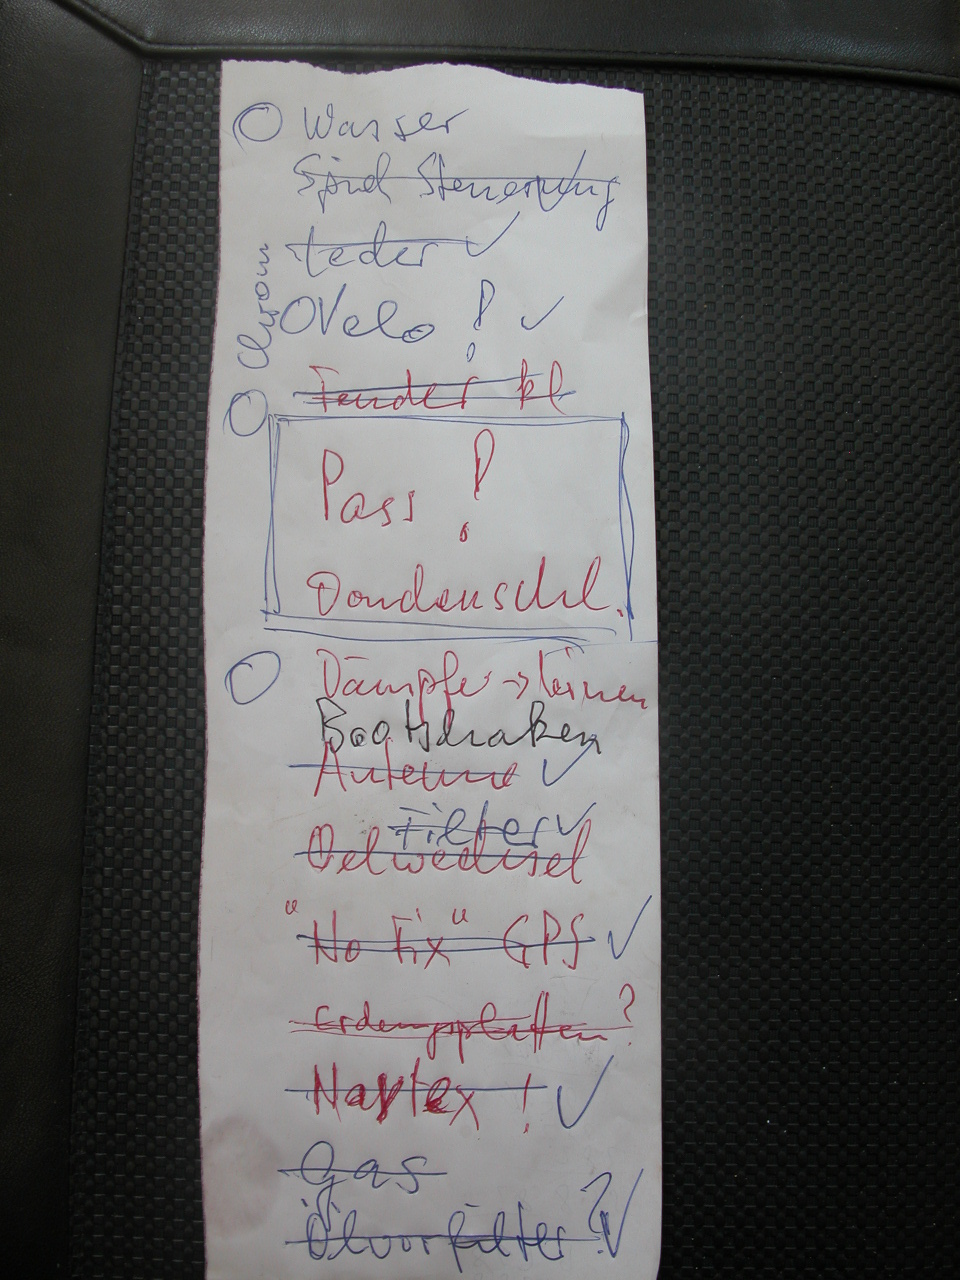 Wasser
Spind Steuerung
Leder
Chrom
Velo !
Fender kl
Pass !
Dondenschl.
Dämpfer → Leinen
Bootshaken
Antenne
Filter
Oelwechsel
"No Fix" GPS
Erdungsplatten ?
Navtex !
Gas
Ölvorfilter ?